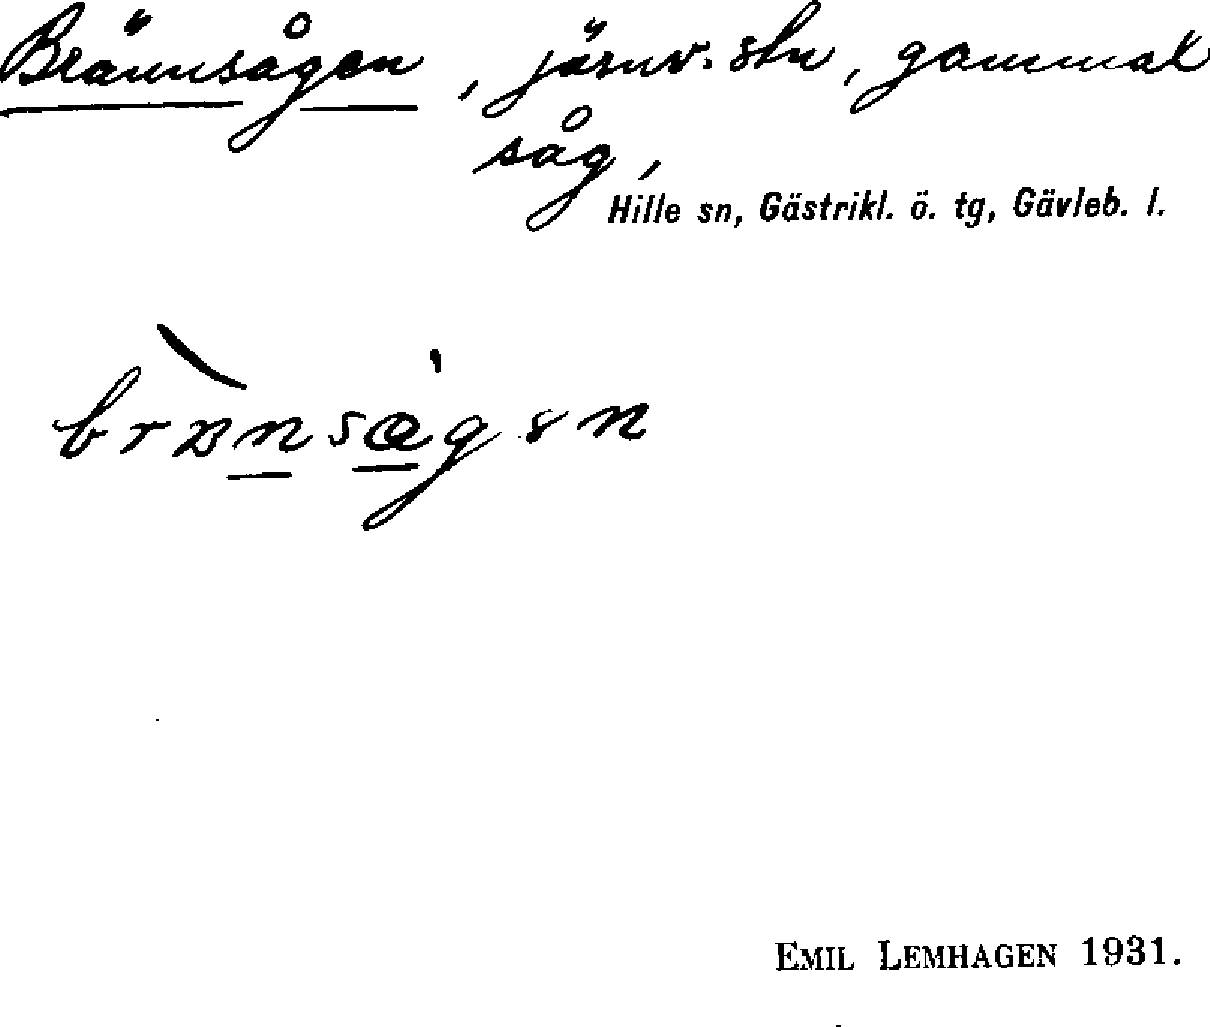 Brännsågen, järnv. stn, gammal
såg,
Hille sn, Gästrikl. ö. tg, Gävleb. l.
EMIL LEMHAGEN 1931.